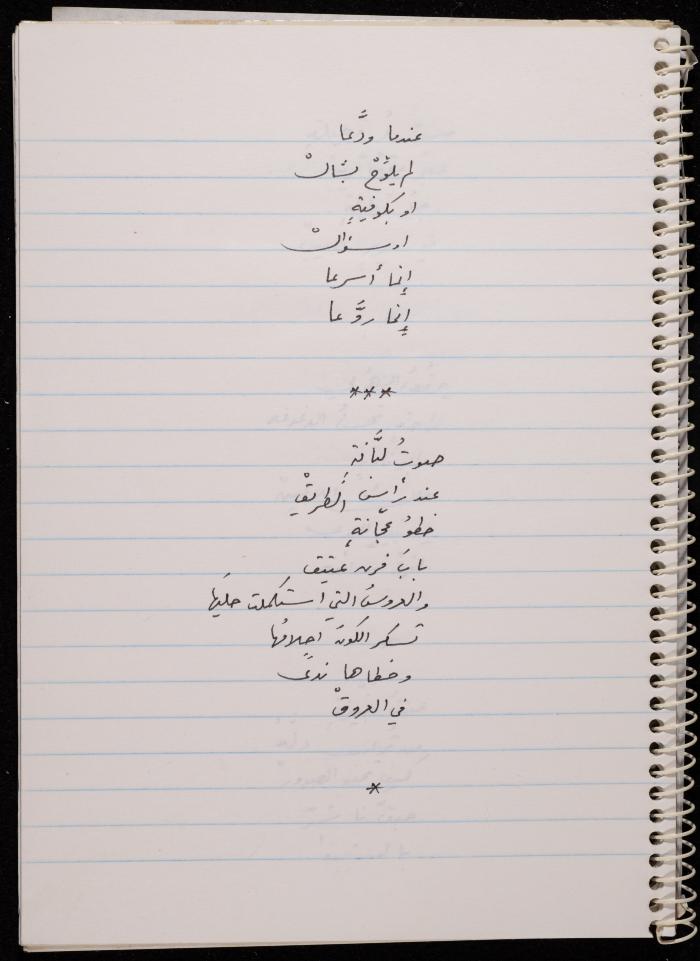 عندما ودَّعا
لم يلوِّحْ بشالْ
او بكوفيةٍ
او سؤالْ
إنما أسرعا
إنما روَّعا
***
صوتُ لبَّانة
عند رأس الطريقْ
خطوُ عجّانةٍ
بابَ فرن عتيق
والعروسُ التي استكملت حليَها
تسكر الكونَ احلامُها
وخطاها ندىً
في العروقْ
*